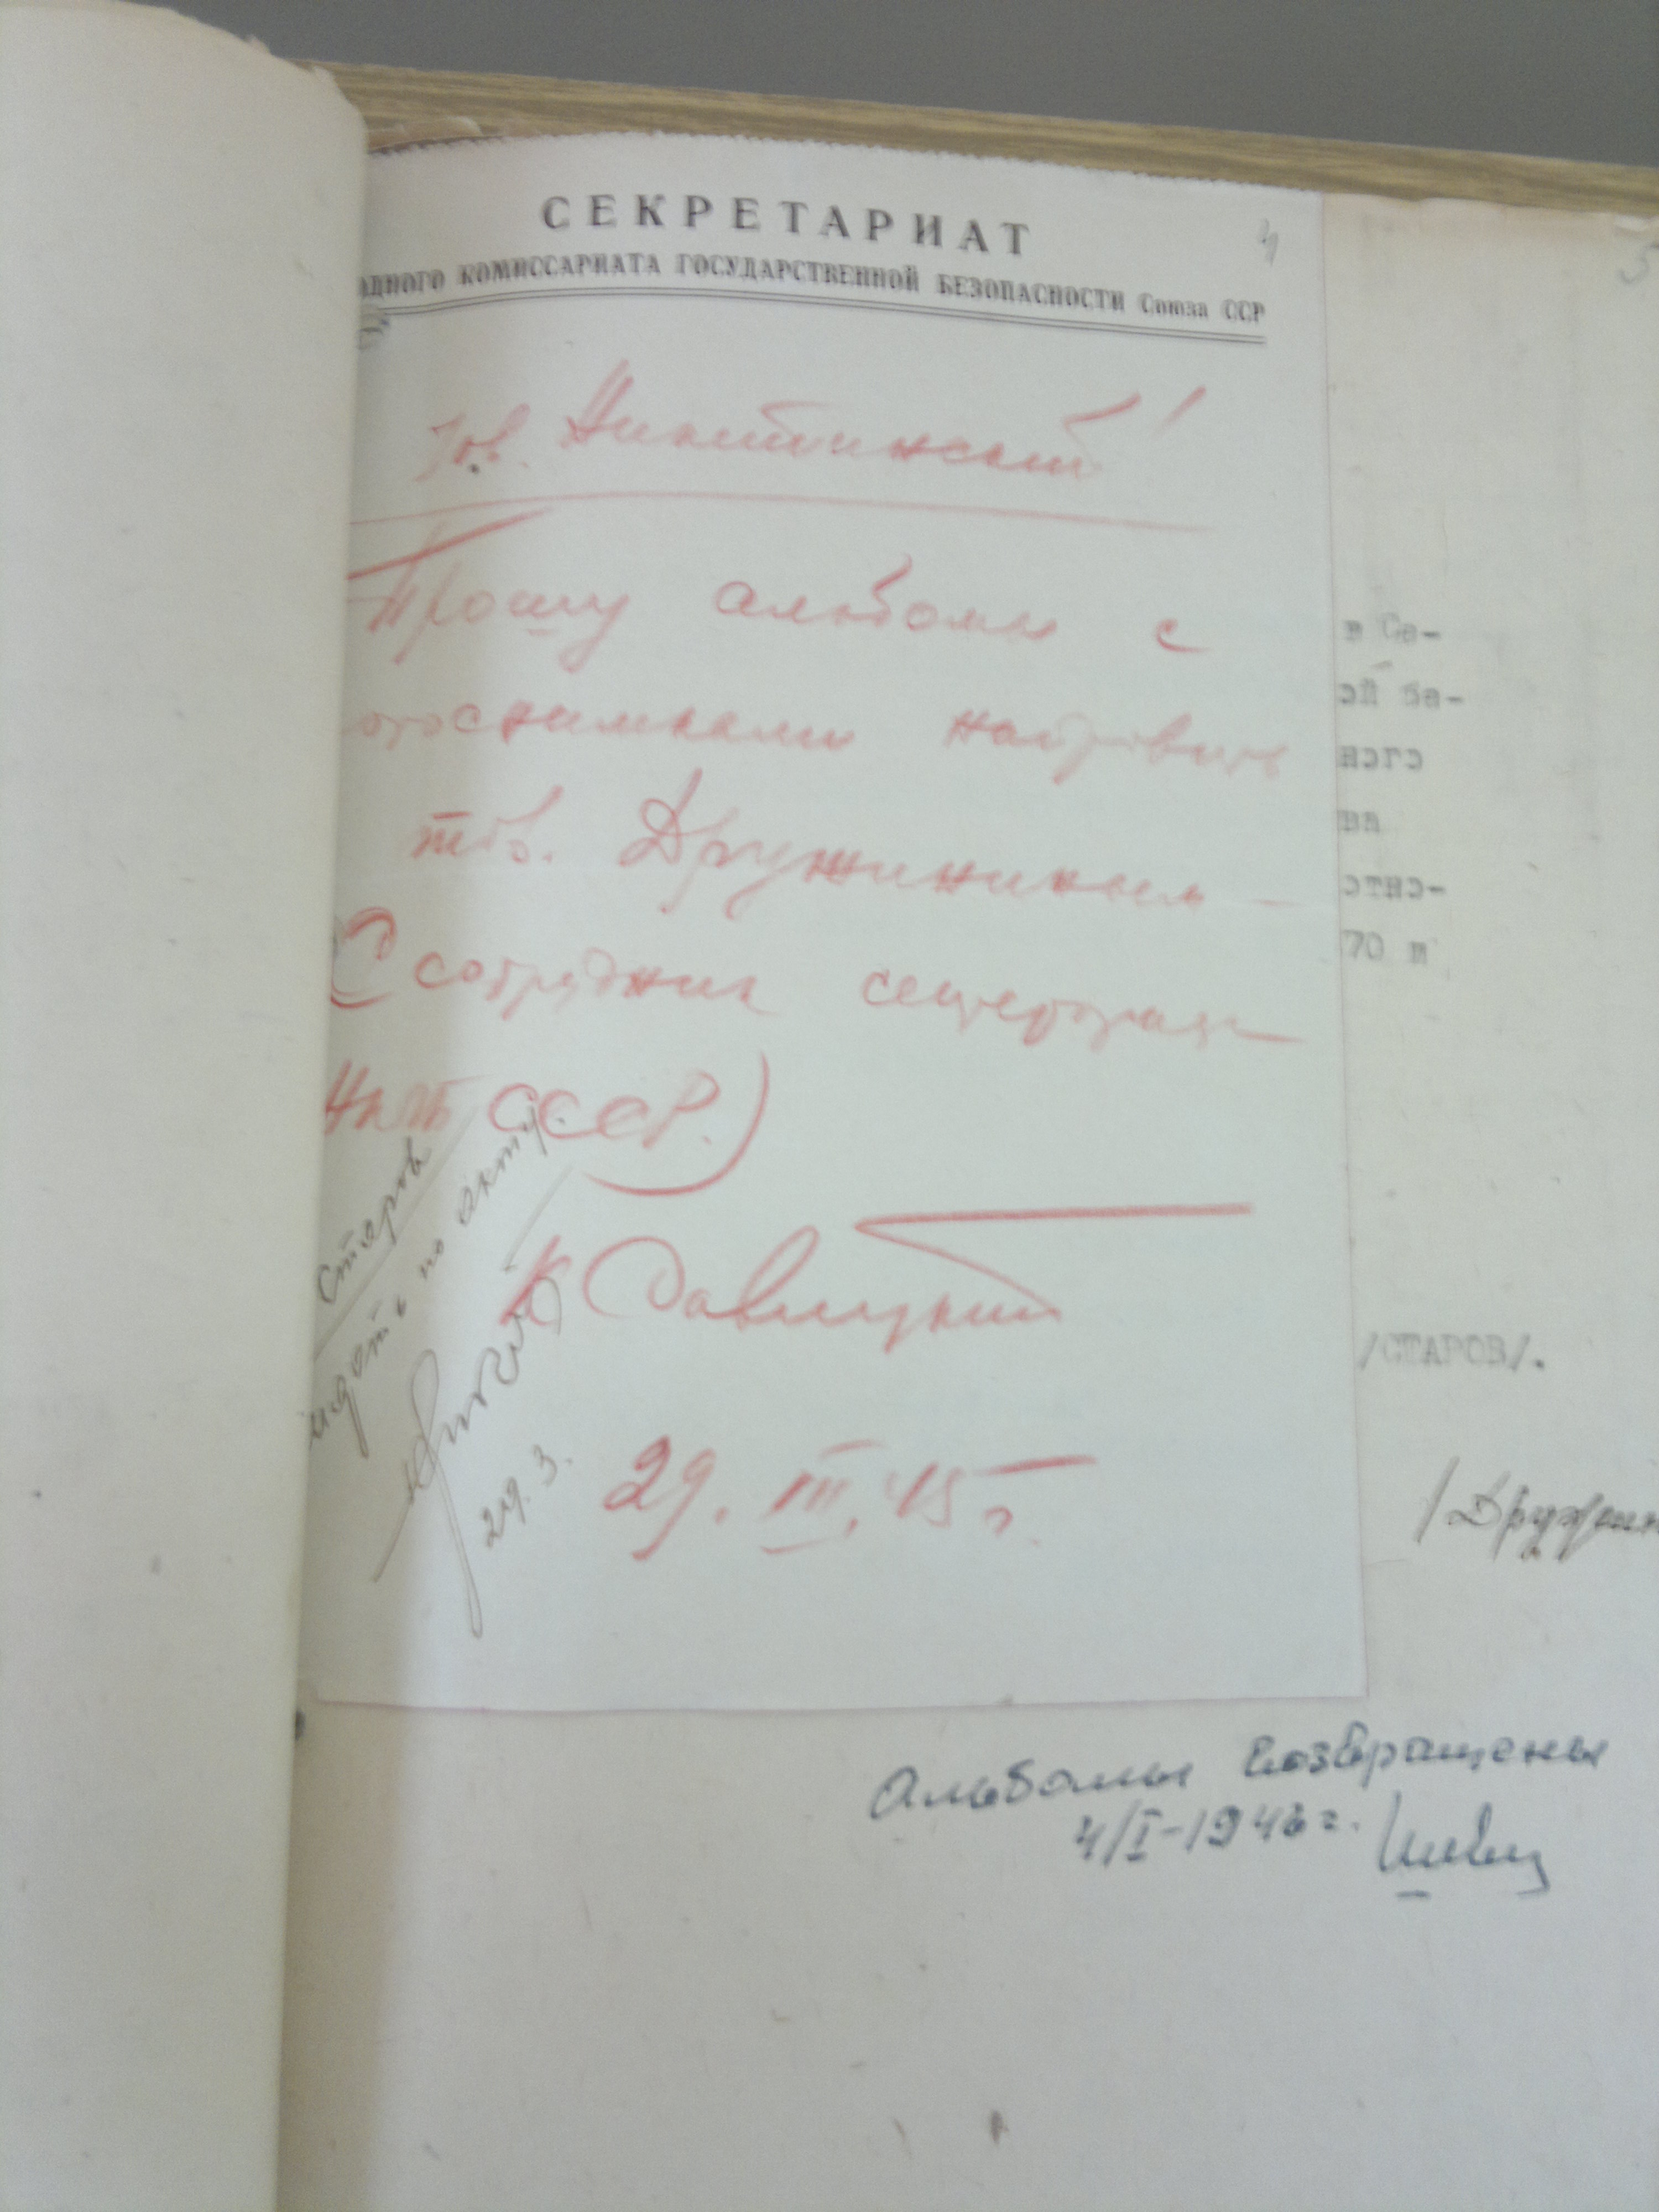 СЕКРЕТАРИАТ
4
5
одного КОМИССАРИАТА ГОСУДАРСТВЕННОЙ БЕЗОПАСНОСТИ Союза ССР
тов. Никитинский!
Прошу альбомы с
отоснимками направить
тов. Дружининым –
(сотрудник секретариат
НКГБ СССР.)
29.III.45 г.
Старов
по акту.
29.3.
в Се-
ой бе-
ного
ва
отно-
70 и
/СТАРОВ/.
/Дружин
Альбомы возвращены
4/I-1946 г.